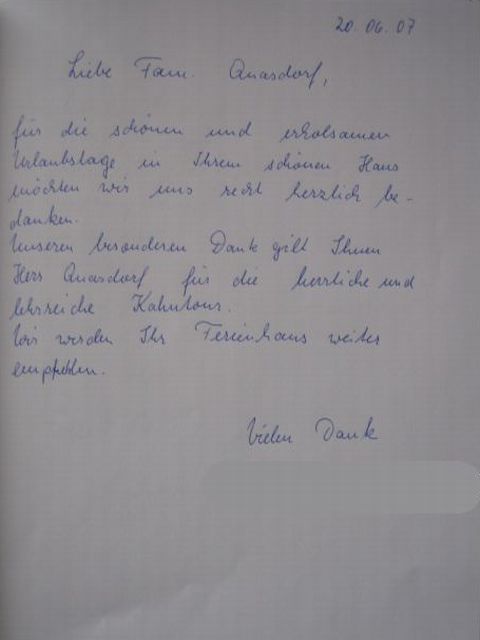 20.06.07
Liebe Fam. Quasdorf,
für die schönen und erholsamen
Urlaubstage in Ihrem schönen Haus
möchten wir uns recht herzlich be-
danken.
Unseren besonderen Dank gilt Ihnen
Herr Quasdorf für die herrliche und
lehrreiche Kahntour.
Wir werden Ihr Ferienhaus weiter
empfehlen.
Vielen Dank